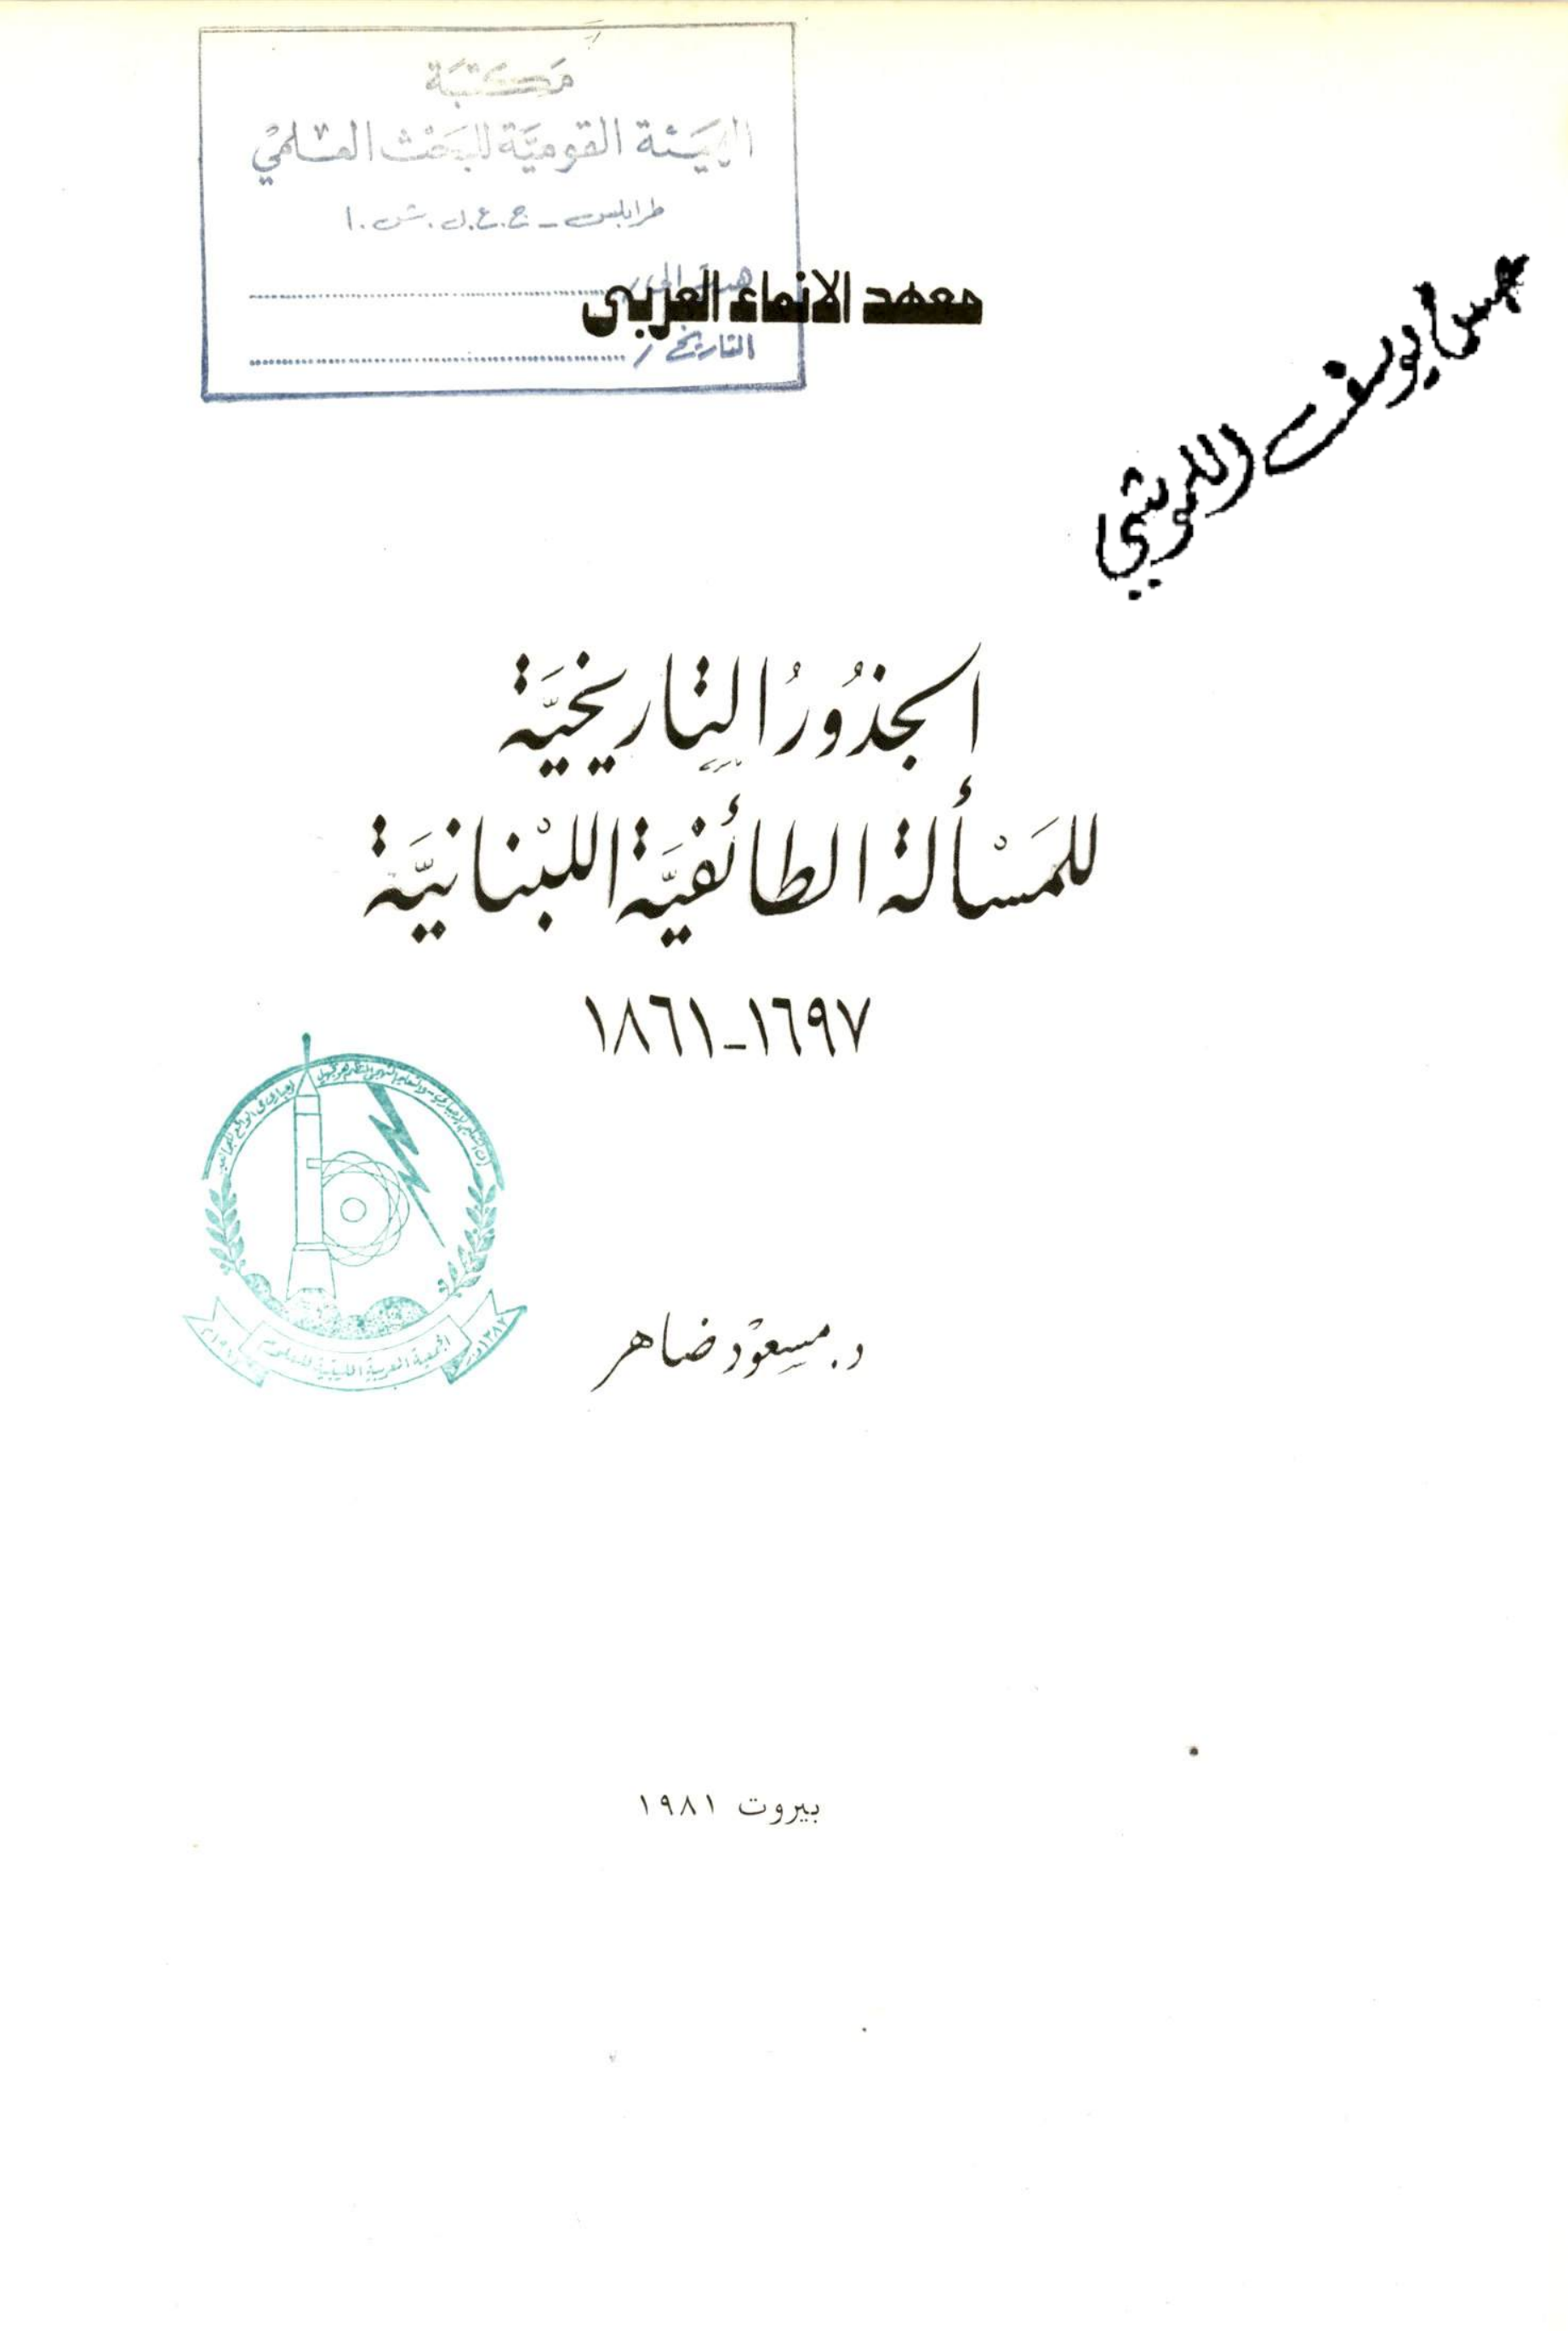 مَكتبَة
الهيَئة القوميَّة للبَحْث العْلمِيْ
طرابلس - ج.ع.ل.ش.ا
هدية الى /
معهد الانماء العربي
التاريخ /
يوسف
الجذُورُ التاريخيَّة
للمَسْألة الطائفيَّة اللبْنانيَّة
١٦٩٧-١٨٦١
د. مسعوْد ضاهر
بيروت ١٩٨١